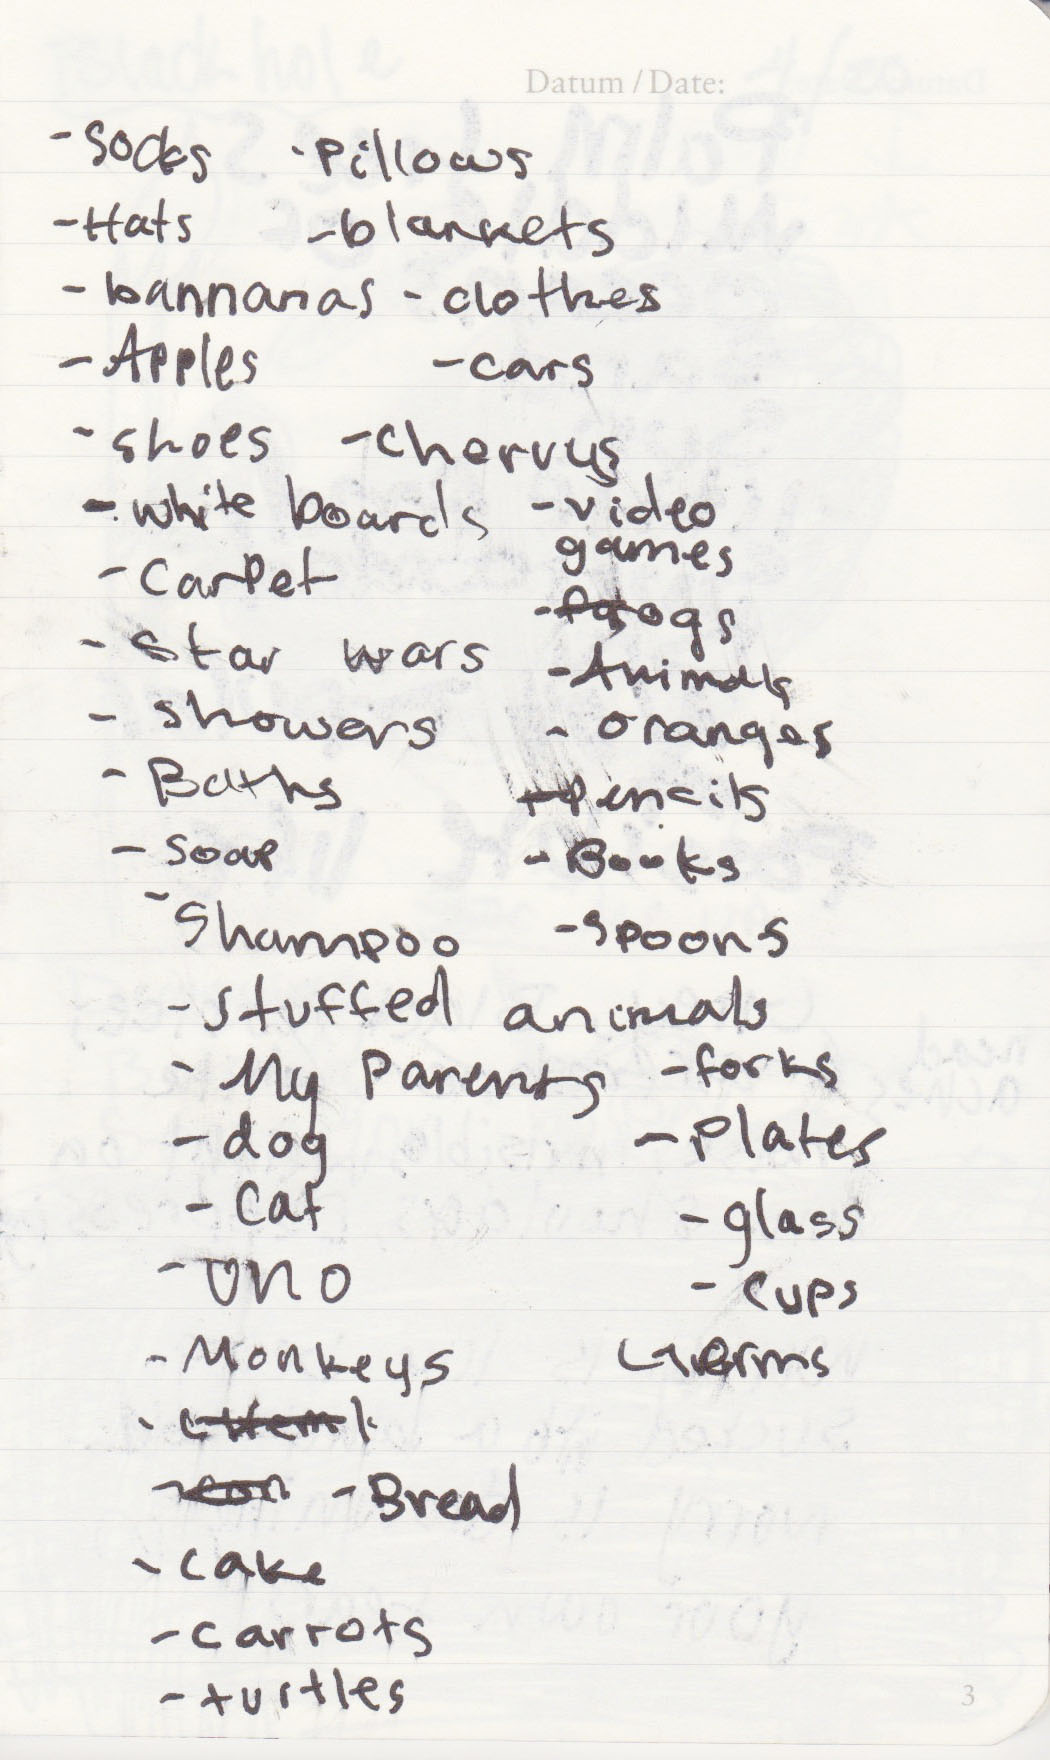 Datum / Date:
- Socks - Pillows
- Hats - blankets
- bannanas - clothes
- Apples - cars
- shoes - chervys
- white boards - video
games
- Carpet
- frogs
- Star wars
- Animals
- showers - oranges
- Baths - Pencils
- soap - Books
- Shampoo - spoons
- stuffed animals
- My Parents - forks
- dog - Plates
- Cat - glass
- UNO - cups
- Monkeys Germs
- Bread
- cake
- carrots
- turtles
3